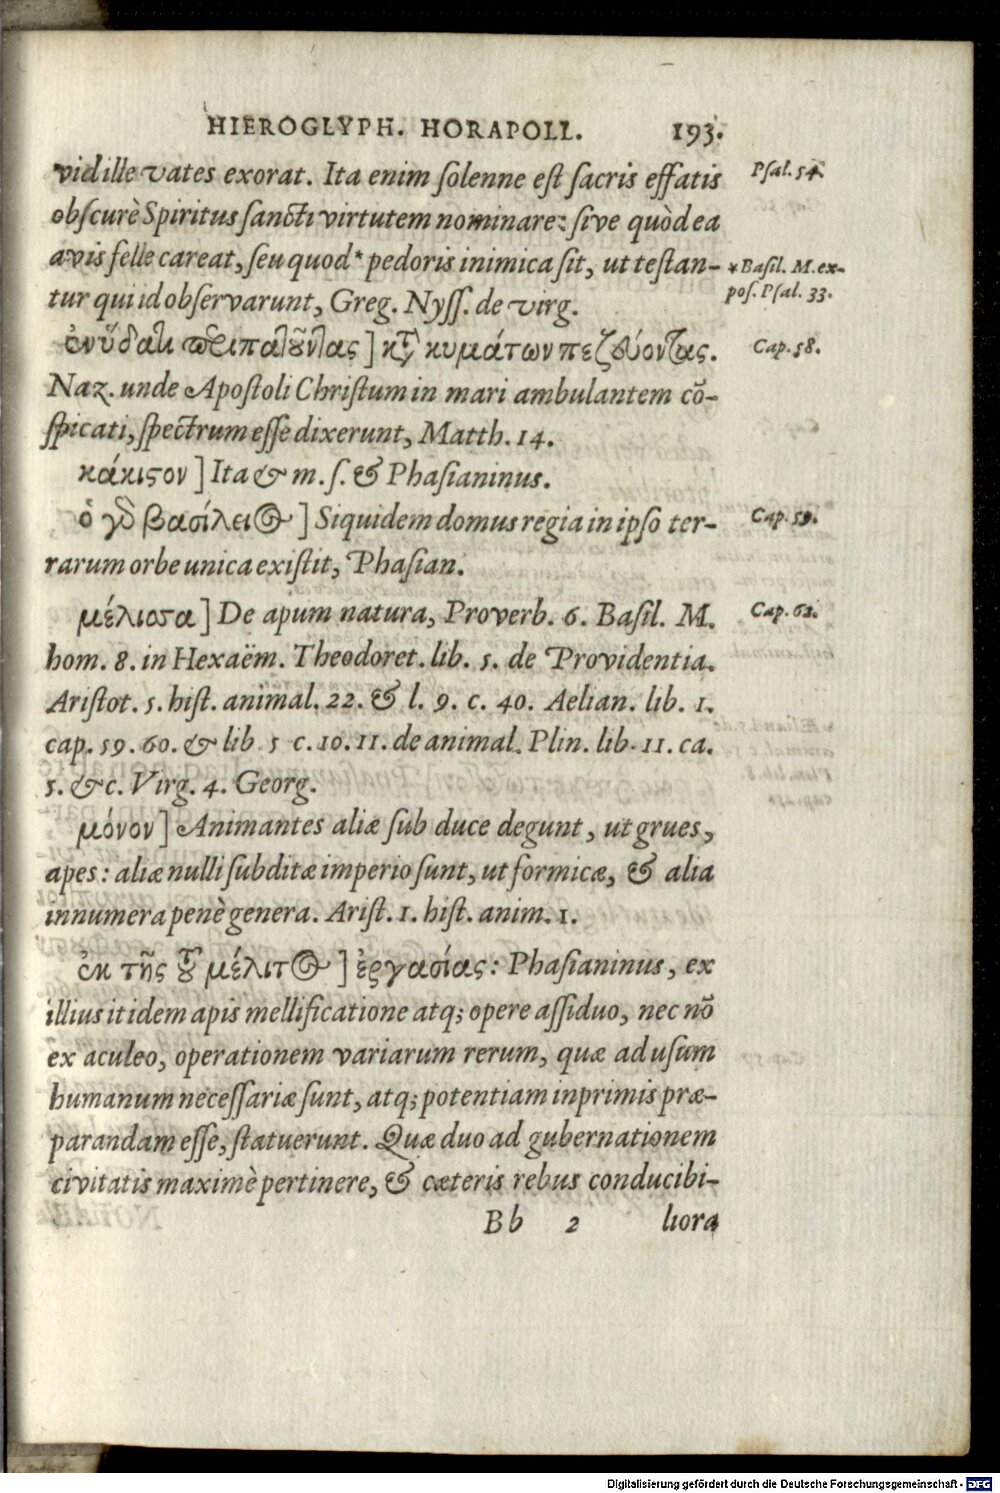 HIEROGLYPH. HORAPOLL. 193.
vid ille vates exorat. Ita enim ſolenne eſt ſacris effatis
Pſal. 54.
obſcurè Spiritus ſancti virtutem nominare: ſive quòd ea
avis felle careat, ſeu quod* pedoris inimica ſit, ut teſtan-
*Baſil. M. ex-
poſ. Pſal. 33.
tur qui id obſervarunt, Greg. Nyſſ. de virg.
ἐν ὕδατι περιπατοῦντας ] κτ̀ κυμάτων πεζεύοντας.
Cap. 58.
Naz. unde Apoſtoli Chriſtum in mari ambulantem cō-
ſpicati, ſpectrum eſſe dixerunt, Matth. 14.
κάκιϛον ] Ita & m. ſ. & Phaſianinus.
ὁ γὸ βασίλειος ] Siquidem domus regia in ipſo ter-
Cap. 59.
rarum orbe unica exiſtit, Phaſian.
μέλισσα ] De apum natura, Proverb. 6. Baſil. M.
Cap. 62.
hom. 8. in Hexaëm. Theodoret. lib. 5. de Providentia.
Ariſtot. 5. hiſt. animal. 22. & l. 9. c. 40. Aelian. lib. 1.
cap. 59. 60. & lib. 5 c. 10. 11. de animal. Plin. lib. 11. ca.
5. &c. Virg. 4. Georg.
μόνον ] Animantes aliæ ſub duce degunt, ut grues,
apes: aliæ nulli ſubditæ imperio ſunt, ut formicæ, & alia
innumera penè genera. Ariſt. 1. hiſt. anim. 1.
ἐκ τῆς τοῦ μέλιτος ] ἐργασίας: Phaſianinus, ex
illius itidem apis mellificatione atq; opere aſſiduo, nec nō
ex aculeo, operationem variarum rerum, quæ ad uſum
humanum neceſſariæ ſunt, atq; potentiam inprimis præ-
parandam eſſe, ſtatuerunt. Quæ duo ad gubernationem
civitatis maximè pertinere, & cæteris rebus conducibi-
Bb 2 liora
Digitalisierung gefördert durch die Deutsche Forschungsgemeinschaft - DFG